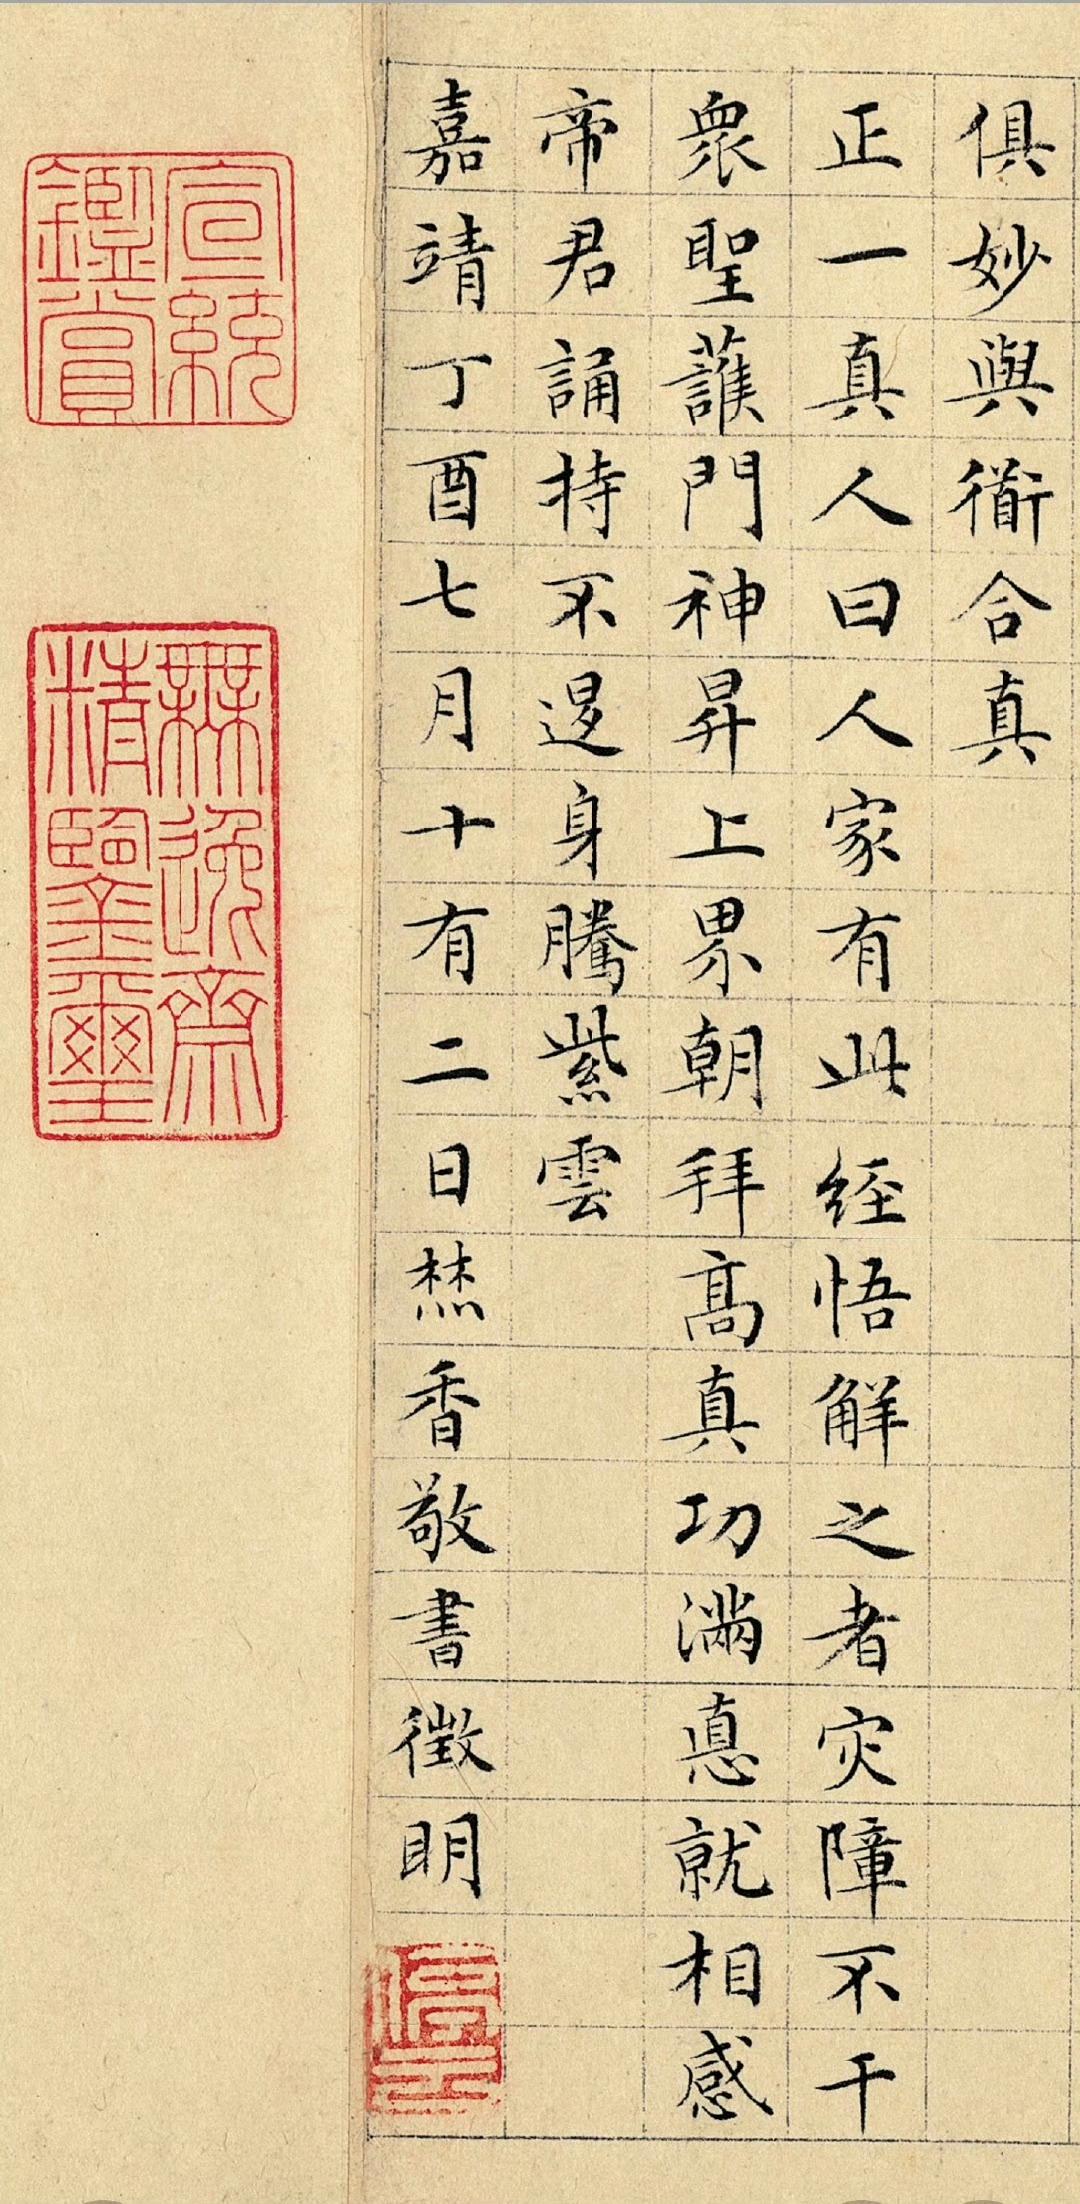 俱妙與衜合真
正一真人曰人家有此経悟解之者灾障不干
衆聖護門神昇上界朝拜高真功満惪就相感
帝君誦持不退身騰紫雲
嘉靖丁酉七月十有二日焚香敬書徵明
停雲
宣統鑑賞
無逸齋精鑒璽